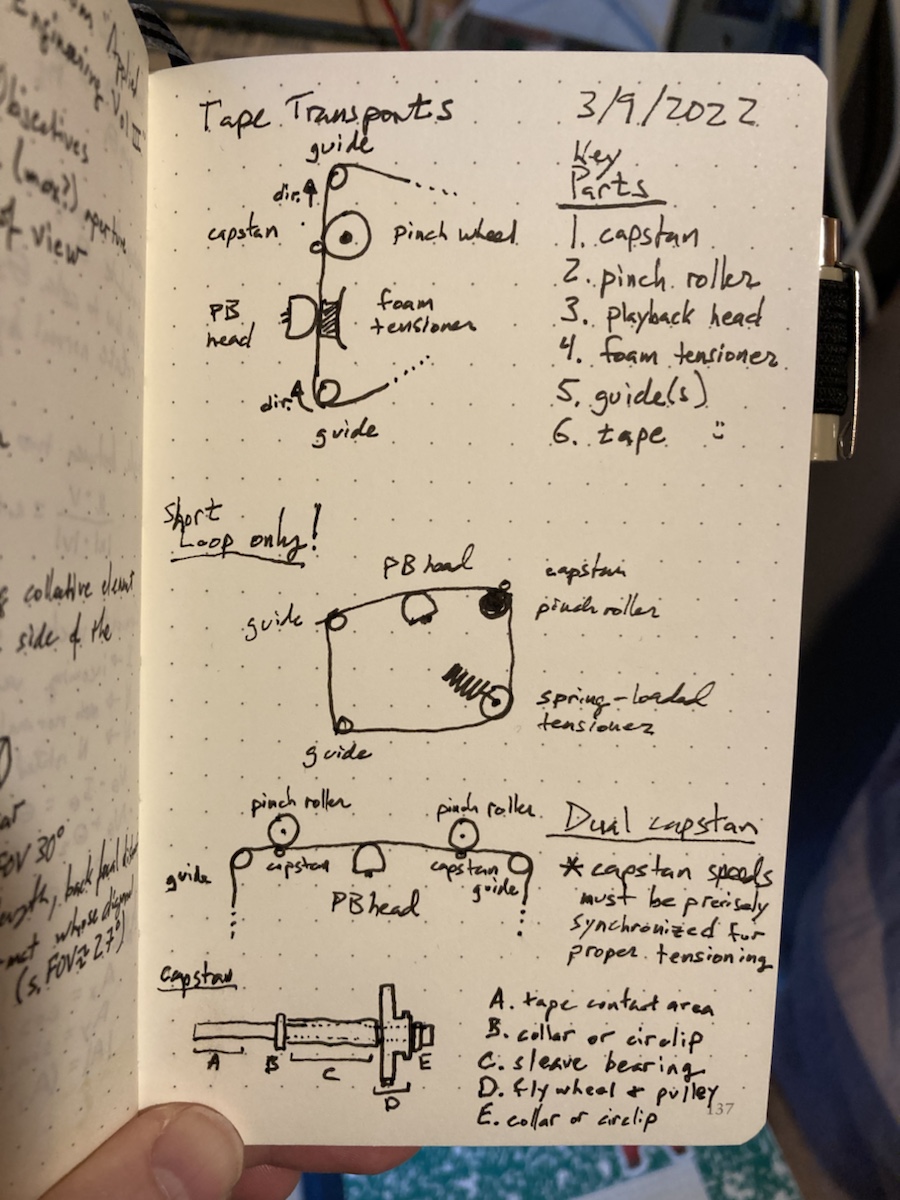 Tape Transports
3/9/2022
guide
dir.
capstan
pinch wheel
PB
head
foam
tensioner
dir.
guide
Key
Parts
1. capstan
2. pinch roller
3. playback head
4. foam tensioner
5. guide(s)
6. tape
Short
Loop only!
PB head
capstan
pinch roller
guide
spring-loaded
tensioner
guide
pinch roller
pinch roller
guide
capstan
capstan
guide
PB head
Dual capstan
* capstan speeds
must be precisely
synchronized for
proper tensioning
capstan
A
B
C
D
E
A. tape contact area
B. collar or circlip
C. sleave bearing
D. flywheel & pulley
E. collar or circlip
137
Applied
Engineering
Vol II"
Objectives
(max?) aperture
of view
collective
side of the
FOV 30°
length, back focal
whose
(s. FOV≈27°)